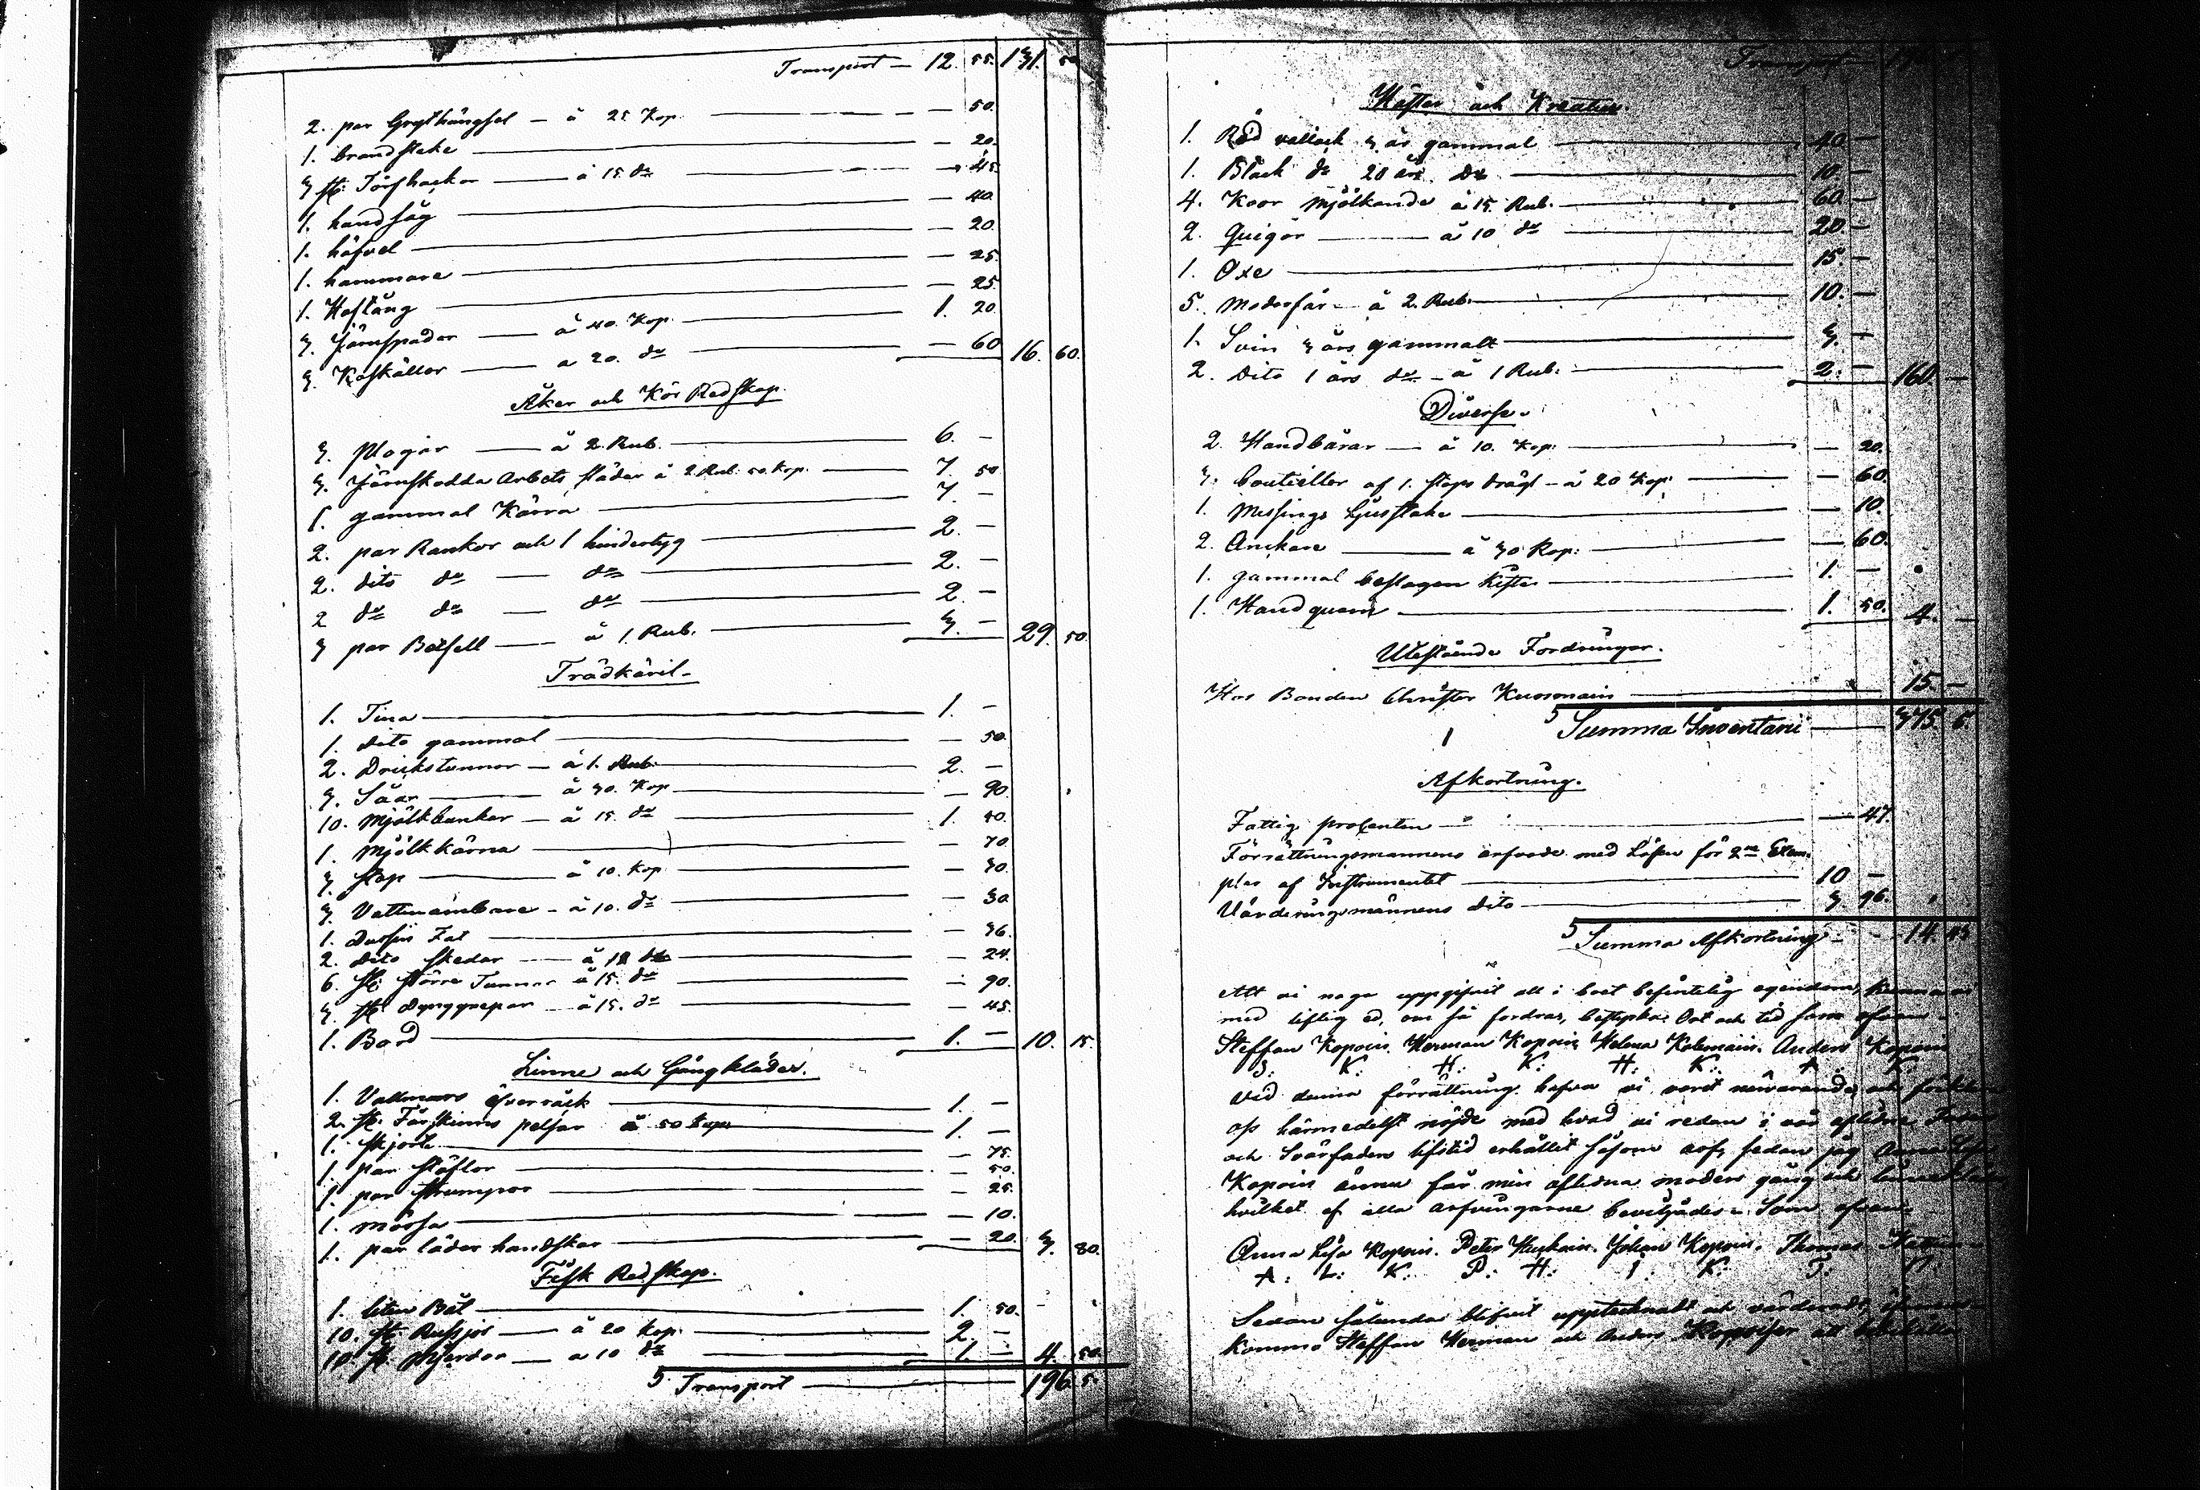 Transport — 12. 55. 131. 50
2. par Grythängsel — à 25 Kop. — 50.
1. brandstake — 20.
3 st: Törfhackor — à 15 do — 45.
1. handsåg — 40.
1. höfvel — 20.
1. hammare — 25.
1. Hoftång — 25
3. Järnspador — à 40. Kop. — 1. 20.
3. Koskällor — a 20. do — 60 16. 60.
Åker och Kör Redskap.
3. Plogar — à 2. Rub. — 6. —
3. Järnskodda Arbets slädar à 2. Rub. 50. Kop. — 7. 50
1. gammal Kärra — 7. —
2. par Rankor och 1 hindertyg — 2. —
2. dito do — do — 2. —
2 do do — do — 2. —
3 par Bolsell — à 1. Rub. — 3. — 29. 50
Trädkäril.
1. Tina — 1. —
1. dito gammal — 50.
2. Drickstunnor — à 1. Rub. — 2. —
3. Såar — à 30. Kop. — 90.
10. Mjölkbunkar — à 15. do — 1. 50.
1. Mjölkkärna — 70.
3. stop — à 10. Kop — 30.
3. Vattuämbare — à 10. do — 30
1. Dussin Fat — 36.
2. dito skedar — à 12 do — 24.
6. st: större Tunnor à 15. do — 90.
3. st: Dynggrepar — à 15. do — 45.
1. Bord — 1. — 10. 15.
Linne och Gångkläder.
1. Vallmars öfverråck — 1. —
2. st. Fårskinns pelsar à 50 Kop: — 1. —
1. skjorta — 75.
1. par stöflor — 50.
1. par strumpor — 25.
1. mössa — 10.
1. par läder handskar — 20. 3. 80.
Fisk Redskap.
1. liten Båt — 1. 50.
10. st: Ryssjor — à 20 Kop: — 2. —
10. st. Mjerdar — a 10 do — 1. — 4. 50.
S Transport — 196. 5.
Transport —
Hästar och Kreatur.
1. Röd vallack 3 år gammal — 40. —
1. Black do 20 års do — 10. —
4. Koor Mjölkande à 15. Rub. — 60. —
2. Quigor — à 10 do — 20. —
1. Oxe — 15. —
5. Moderfår — à 2. Rub. — 10. —
1. Svin 3 års gammalt — 3. —
2. Dito 1 års do — à 1 Rub. — 2. — 160. —
Diverse.
2. Handbårar — à 10. Kop. — 20.
3. bouteiller af 1. stops drägt — à 20 Kop: — 60.
1. Messings Ljusstake — 10.
2. Anckare — à 30 Kop: — 60.
1. gammal beslagen Kista — 1. —
1. Handquarn — 1. 50. 4. —
Utestående Fordringar.
Hos Bonden Christer Kuosmain — 15. —
S Summa Inventarii — 375. 5.
Afkortning.
Fattig procenten — 47.
Förrättningsmannens arfvode med Lösen för 2ne Exem-
plar af Instrumentet — 10 —
Värderingsmännens dito — 3. 96.
S Summa Afkortning — 14. 43
Att vi noga uppgifvit all i boet befintelig egendom, kunna vi
med liflig ed, om så fordras, bestyrka. Ort och tid som ofvan.
Steffan Kopoin. Herman Kopoin. Helena Kolemain. Anders Kopoin
S: K: H: K: H: K: A: K:
Vid denna förrättning hafva vi varit närvarande, och förklara
oss härmedelst nöjde med hvad vi redan i vår aflidne Faders
och Svärfaders lifstid erhållit såsom arf, sedan jag Anna Lisa
Kopoin ännu får min aflidna moders gång och linnekläder,
hvilket af alla arfvingarne beviljades. Som ofvan.
Anna Lisa Kopoin. Peter Huskoin. Johan Kopoin. Thomas
A: L: K: P: H: J: K: T:
Sedan sålunda blifvit upptecknadt och värderadt, öfverens-
kommo Steffan Herman och Anders Kopoiser att